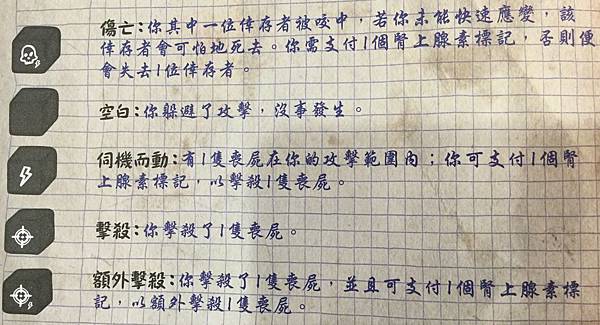 傷亡：你其中一位倖存者被咬中，若你未能快速應變，該
倖存者會可怕地死去。你需支付1個腎上腺素標記，否則便
會失去1位倖存者。
空白：你躲避了攻擊，沒事發生。
伺機而動：有1隻喪屍在你的攻擊範圍內；你可支付1個腎
上腺素標記，以擊殺1隻喪屍。
擊殺：你擊殺了1隻喪屍。
額外擊殺：你擊殺了1隻喪屍，並且可支付1個腎上腺素標
記，以額外擊殺1隻喪屍。